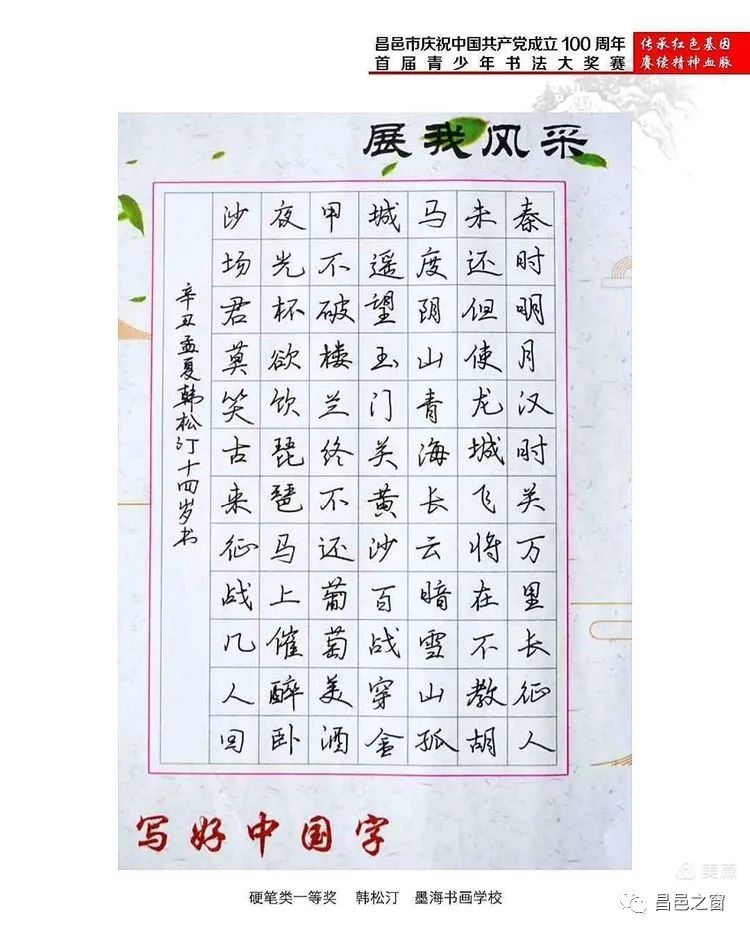 昌邑市庆祝中国共产党成立100周年
首届青少年书法大奖赛
传承红色基因
赓续精神血脉
展我风采
秦时明月汉时关万里长征人
未还但使龙城飞将在不教胡
马度阴山青海长云暗雪山孤
城遥望玉门关黄沙百战穿金
甲不破楼兰终不还葡萄美酒
夜光杯欲饮琵琶马上催醉卧
沙场君莫笑古来征战几人回
辛丑孟夏韩松汀十四岁书
写好中国字
硬笔类一等奖 韩松汀 墨海书画学校
美篇
昌邑之窗